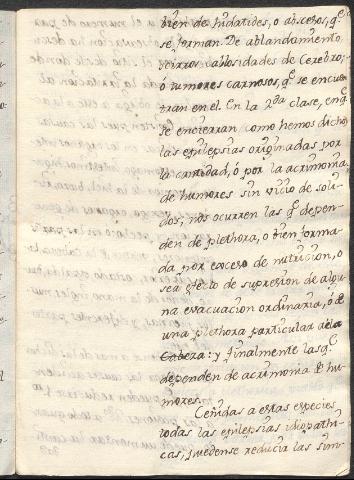 bien de hidatides, o abscesos, q.e
se forman. De ablandamiento
scirros callosidades de Cerebro;
ó tumores carnosos, q.e se encuen
tran en el. En la 2.da clase, en q.e
se encierran como hemos dicho,
las epilepsias originadas por
la cantidad, ó por la acrimonia
de humores sin vicio de soli-
dos; nos ocurren las q.e depen-
den de plethora, o bien forma-
da por exceso de nutricion, o
sea efecto de supresion de algu
na evacuacion ordinaria, ó de
una plethora particular a la
Cabeza: y finalmente las q.e
dependen de acrimonia de hu
mores.
Ceñidas a estas especies
todas las epilepsias idiopathi-
cas, puedense reducir las sim